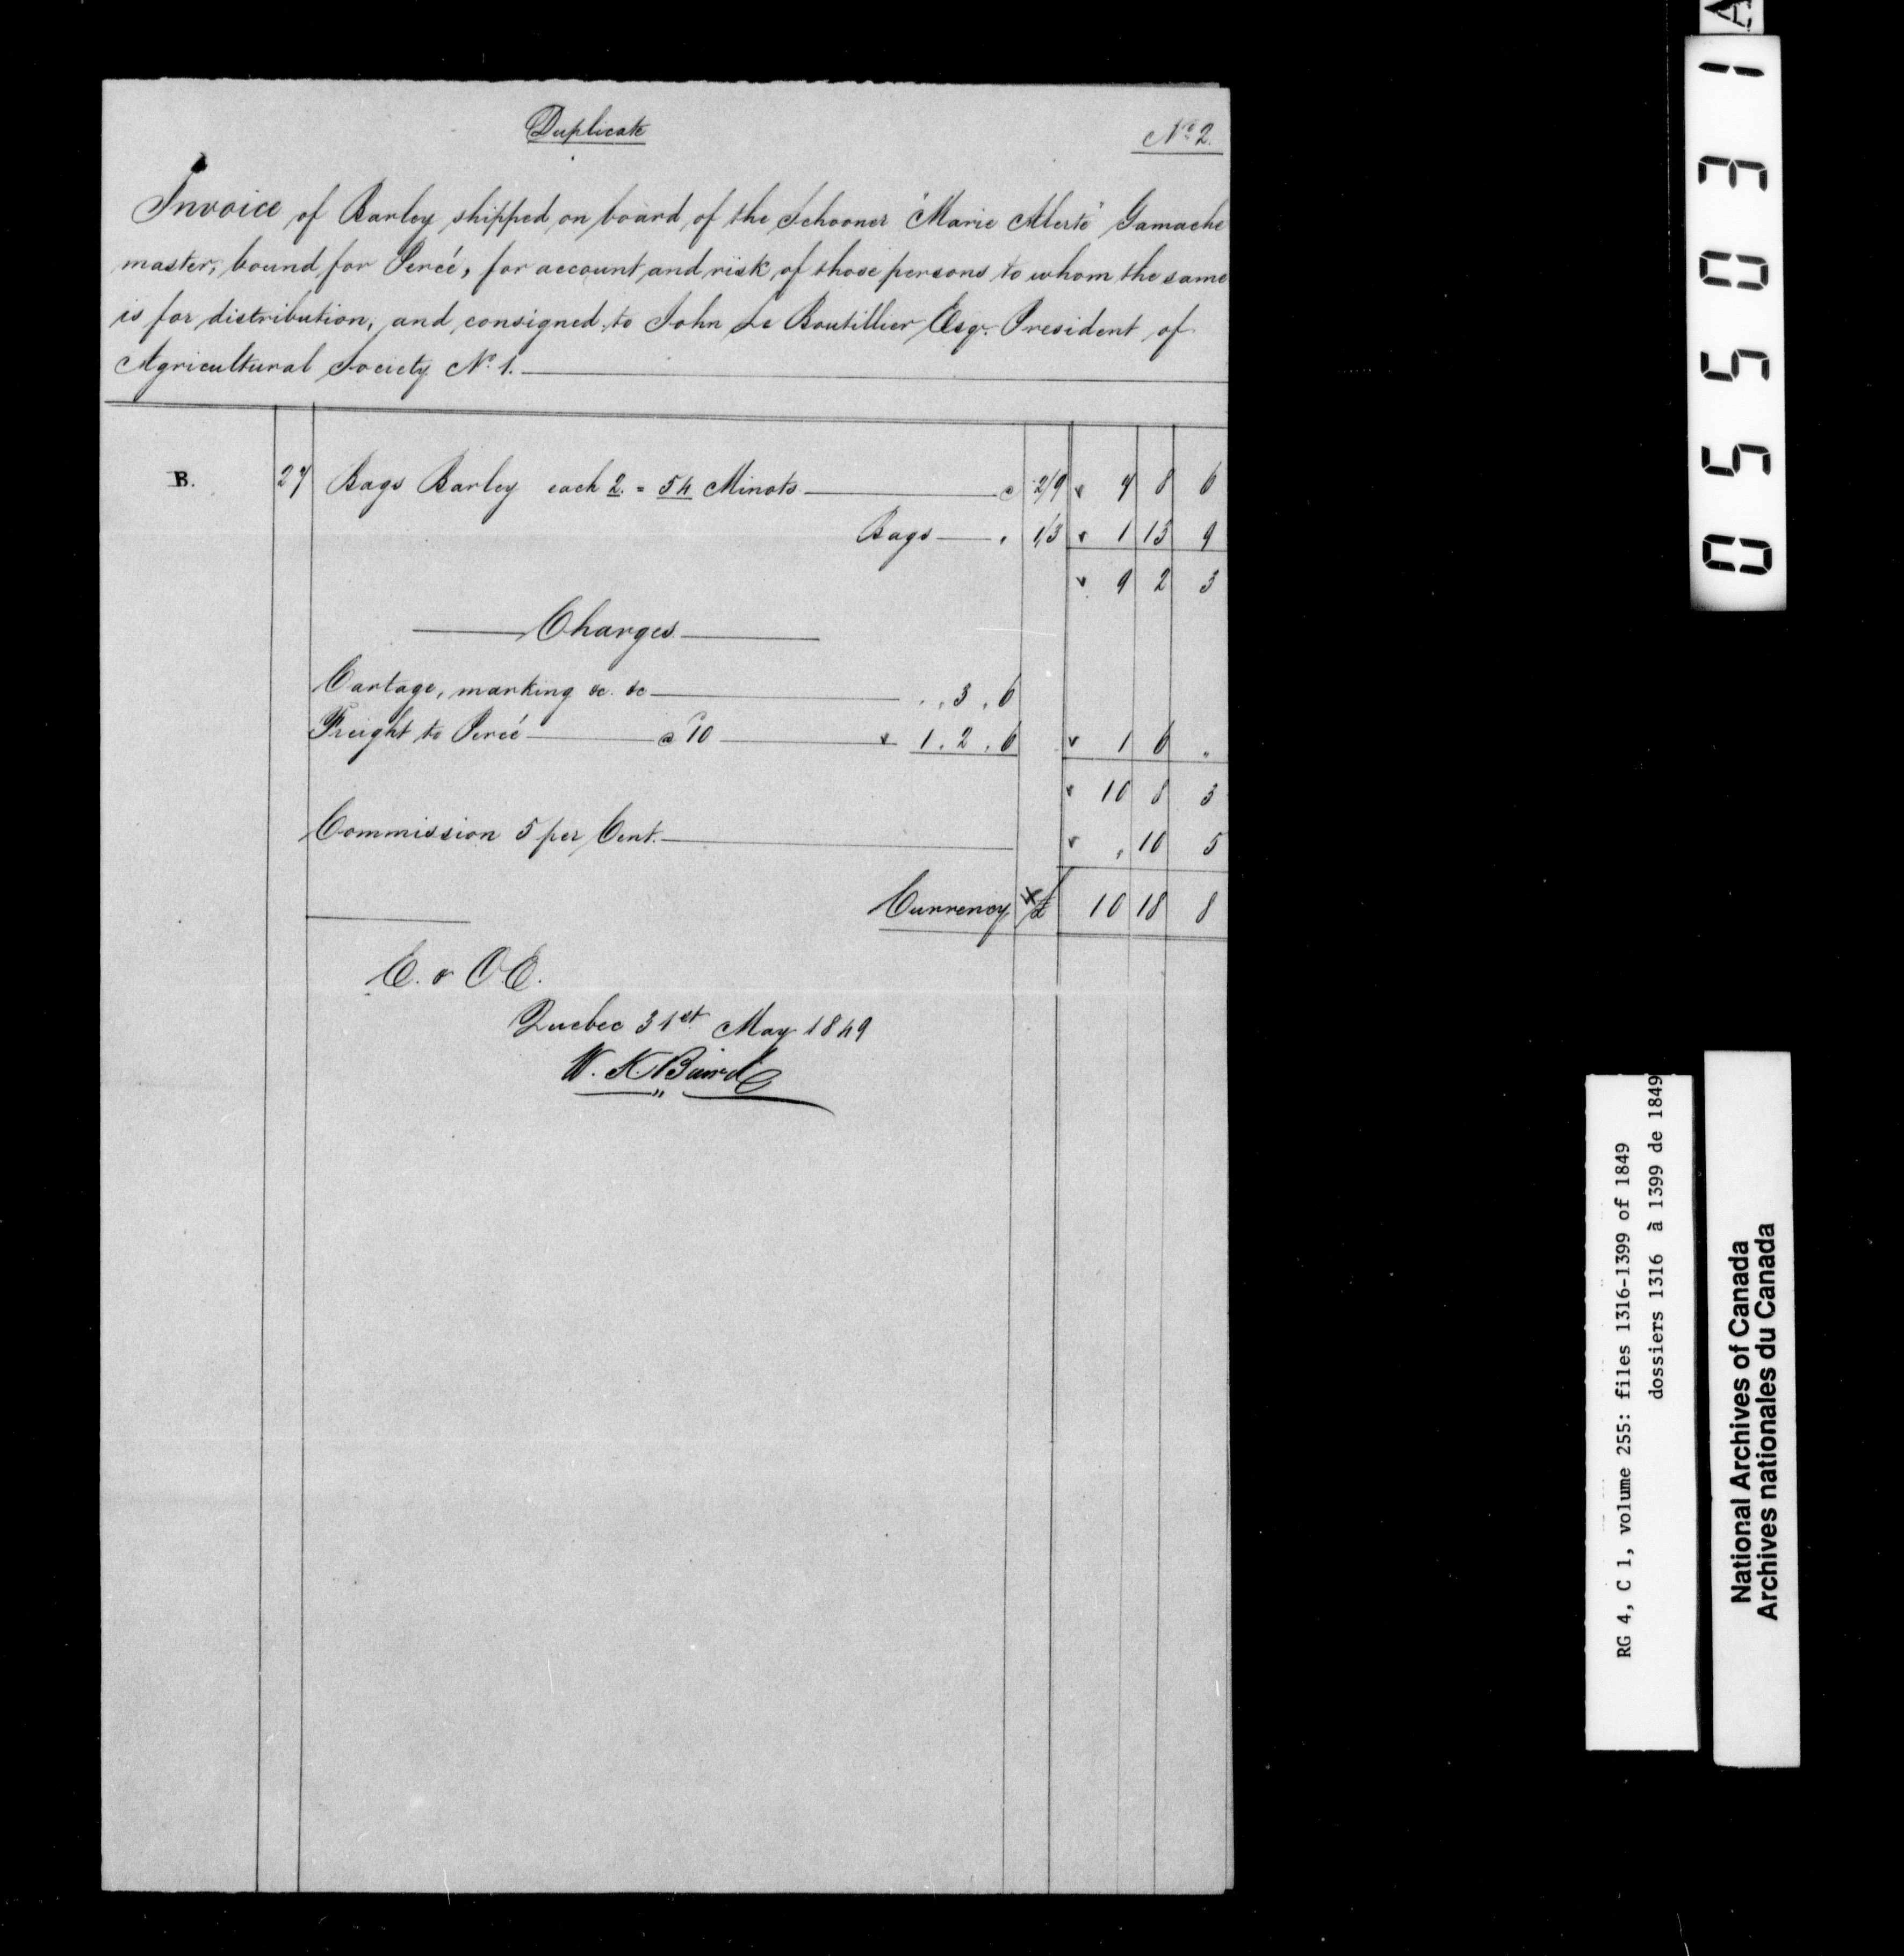 Duplicate
No. 2.
Invoice of Barley shipped on board of the Schooner "Marie Alerte" Gamache
master, bound for Percé, for account and risk of those persons to whom the same
is for distribution, and consigned to John Le Boutillier Esqr. President of
Agricultural Society No. 1.
B. 27 Bags Barley each 2. = 54 Minots @ 2/9 7 8 6
Bags " 1/3 1 13 9
9 2 3
Charges
Cartage, marking &c. &c " 3 " 6
Freight to Percé @ 10d 1 " 2 " 6 1 6 "
10 8 3
Commission 5 per Cent. " 10 5
Currency £ 10 18 8
E. & O.E.
Quebec 31st May 1849
W. K. Baird
A
055031
RG 4, C 1, volume 255: files 1316-1399 of 1849
dossiers 1316 à 1399 de 1849
National Archives of Canada
Archives nationales du Canada